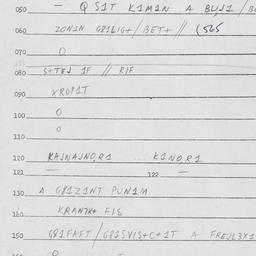 050 — Q S1T K1M1N A BUJ1 / B
060 ZON1N GR1LIG+ / BET+ // (565
070 O
080 S+TEJ 1F // RIF
090 XROP1T
100 O
110 O
120 KAJNAJNO,R1 ... K1NO,R1
121 — 122 —
130 A GR1Z1NT PUN1M
140 KRANTK+ FIS
150 GR1FAFT / GR1SVIS+C+1T A FREJL3X1
O